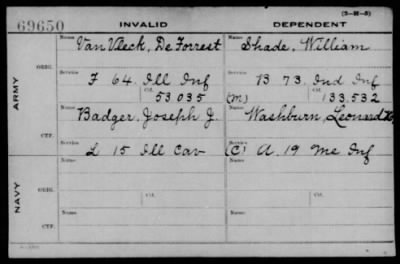 (3-M-3)
69650 INVALID DEPENDENT
Name Van Vleck, DeForrest Name Shade, William
ORIG.
Service F 64. Ill Inf Service B 73. Ind Inf
Ctf. 53.035 (M) Ctf. 133.532
ARMY
Name Badger, Joseph J. Name Washburn, Leonard
CTF.
Service L 15 Ill Cav Service (C) A. 19 Me Inf
Name Ctf. Name Ctf.
ORIG.
Service Service
NAVY
Name Ctf. Name Ctf.
CTF.
Service Service